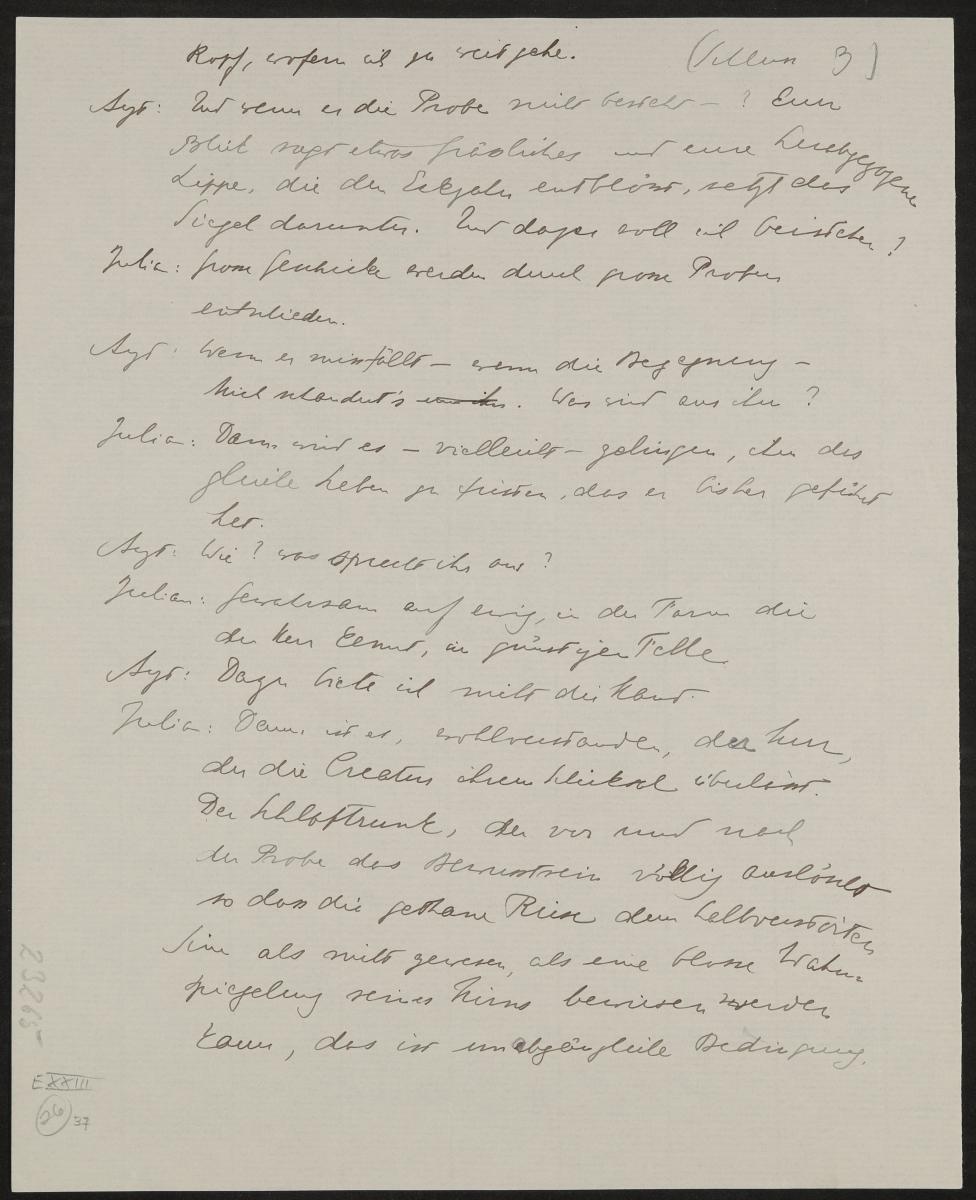 Kopf, wofern ich zu weit gehe. ( 3 )
Arzt: Und wenn er die Probe nicht besteht – ? Euer
Blick sagt etwas grässliches und eure herabgezogene
Lippe, die den Eckzahn entblösst, setzt das
Siegel darunter. Und dazu soll ich beistehen?
Julian: Grosse Geschicke werden durch grosse Proben
entschieden.
Arzt: Wenn er missfällt – wenn die Begegnung –
Mich schaudert's. Was wird aus ihm?
Julian: Dann wird es – vielleicht – gelingen, ihm das
gleiche Leben zu fristen, das er bisher geführt
hat.
Arzt: Wie? was sprecht ihr aus?
Julian: Gewahrsam auf ewig, in der Form die
der Herr kennt, im günstigen Falle.
Arzt: Dazu biete ich nicht die Hand.
Julian: Dann ist er, wohlverstanden, der Herr,
der die Creatur ihrem Schicksal überlässt.
Der Schlaftrunk, der vor und nach
der Probe das Bewusstsein völlig auslöscht
so dass die gethane Reise dem halbverstörten
Sinn als nicht gewesen, als eine blosse Wahn-
spiegelung seines Hirns bewiesen werden
kann, das ist unabgängliche Bedingung.
23265
E XXIII
26
37